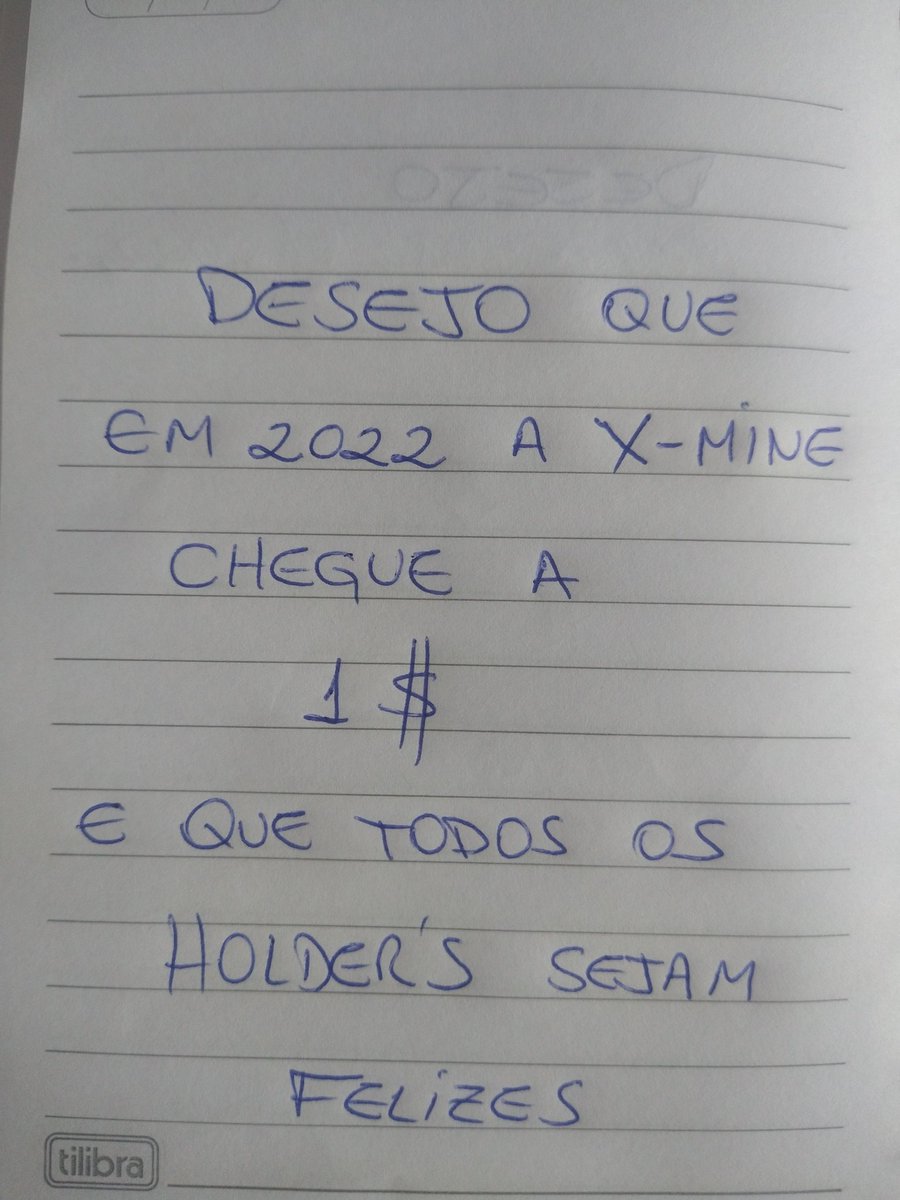 DESEJO QUE
EM 2022 A X-MINE
CHEGUE A
1 $
E QUE TODOS OS
HOLDER'S SEJAM
FELIZES
tilibra